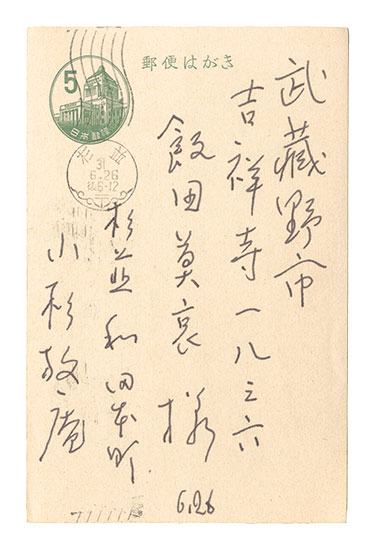 郵便はがき
5
日本郵便
31
6.26
后6-12
武蔵野市
吉祥寺一八三六
飯田莫哀様
杉並和田本町
小杉放庵
6.26